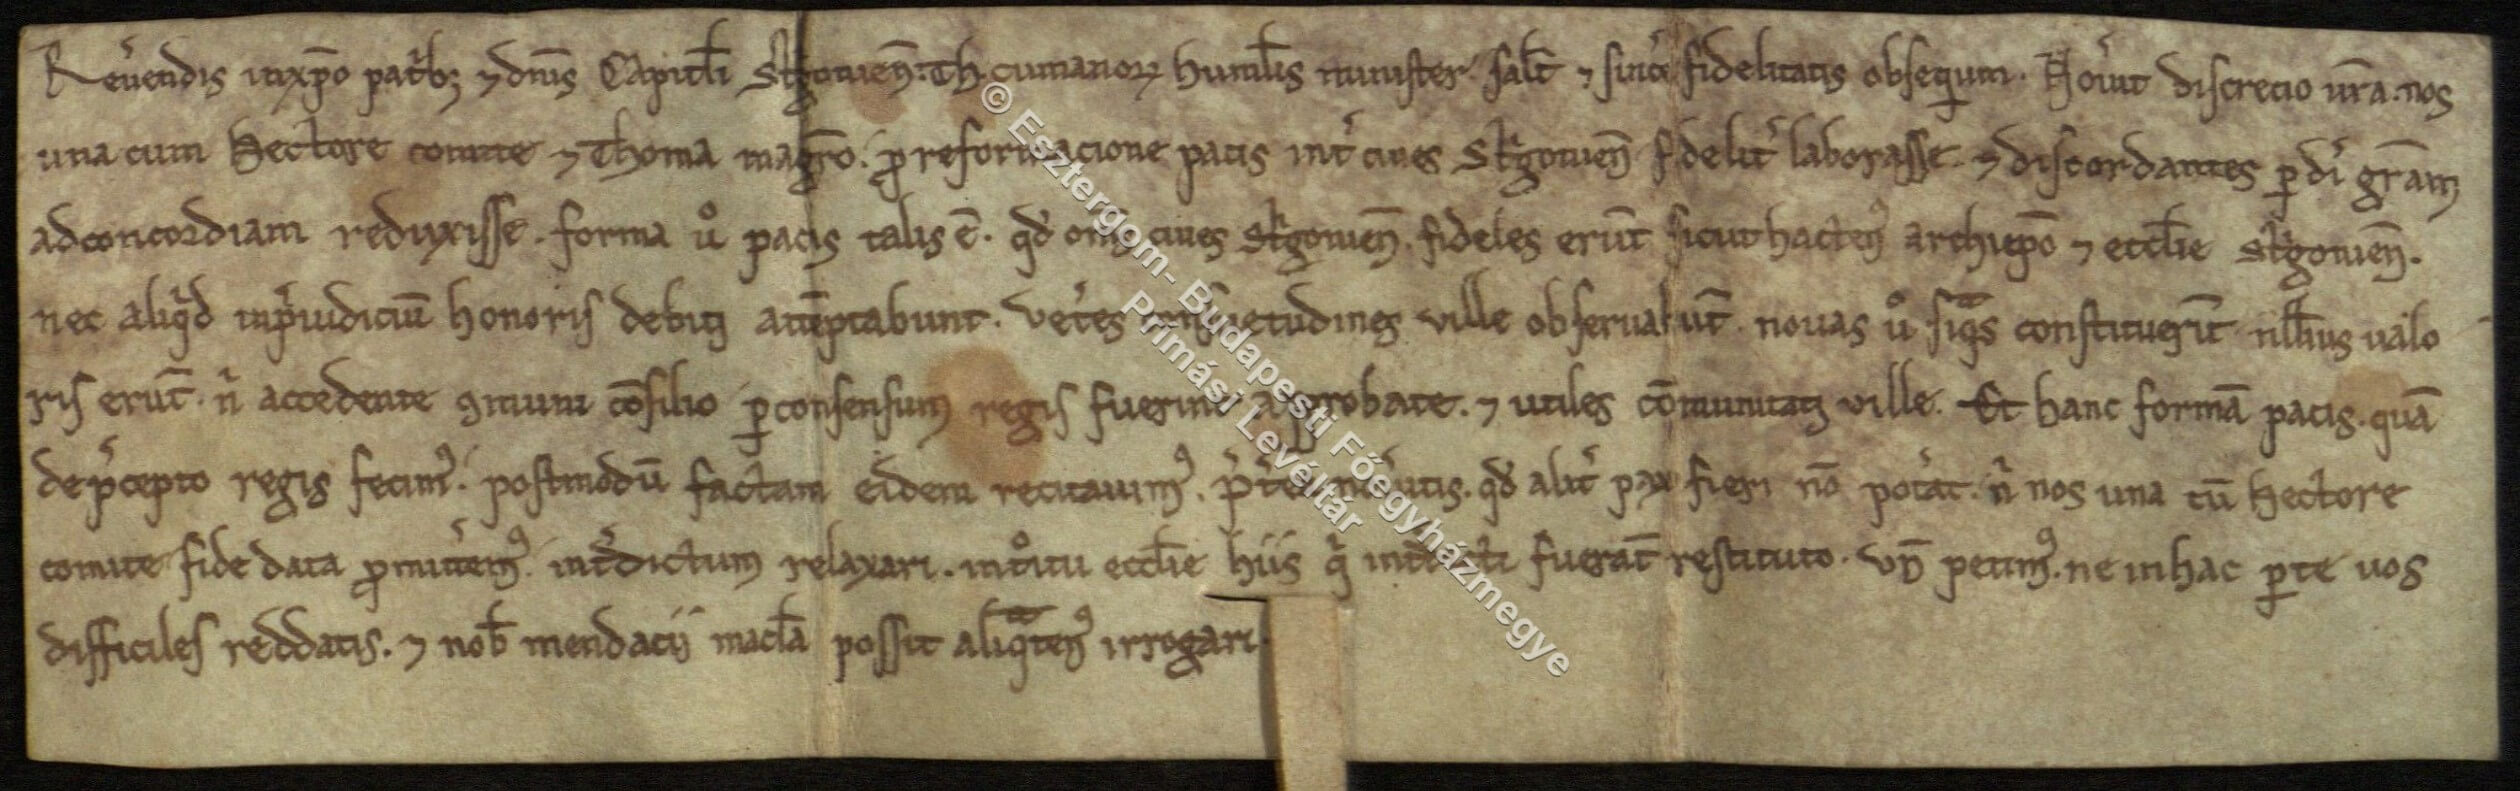 Reu̾endis inxp̄o patrib; ⁊ dn̄is Capitl̄i Str̾gonien̄. Th. cumanoꝝ humil̄is minister. salt̄ ⁊ sinc̾e fidelitatis obsequium. Nou̾it discrecio ur̄a. nos
una cum Hectore comite ⁊ Thoma magr̄o. ꝓ reformacione pacis int̾ ciues Str̾gonien̄ fidelit̾ laborasse. ⁊ discordantes ꝑ di̾ gr̄am
ad concordiam reduxisse. forma ů pacis talis ē. qd̾ om̄s ciues Str̾gonien̄. fideles erūt sicut hacten᾽ archiep̄o ⁊ eccl̄ie Str̾gonien̄.
nec aliqͥd inp̾iudiciū honoris debiti attēptabunt. Vet̾es consuetudines ville obseruabūt. nouas ů siqͣs constituerūt nll̄ius ualo
ris erūt. n̾ accedente ꝯmuni cōsilio ꝑ consensum regis fuerint approbate. ⁊ utiles cōmunitati ville. Et hanc formā pacis. quā
de p̾cepto regis fecim᾽. postmodū factam eidem recitauim᾽. p̾t̾ea nou̾itis. qd̾ alit̾ pax fieri nō pot̾at. n̾ nos una cū Hectore
comite fide data ꝓmitt̾em᾽. int̾dictum relaxari. int̊itu eccl̄ie hiis qͥ int̾dicti fuerāt restituto. Vn̄ petim᾽. ne in hac ꝑte uos
difficiles reddatis. ⁊ nob̄ mendacii macl̄a possit aliqͣten᾽ irrogari.
© Esztergom- Budapesti Főegyházmegye
Prímási Levéltár